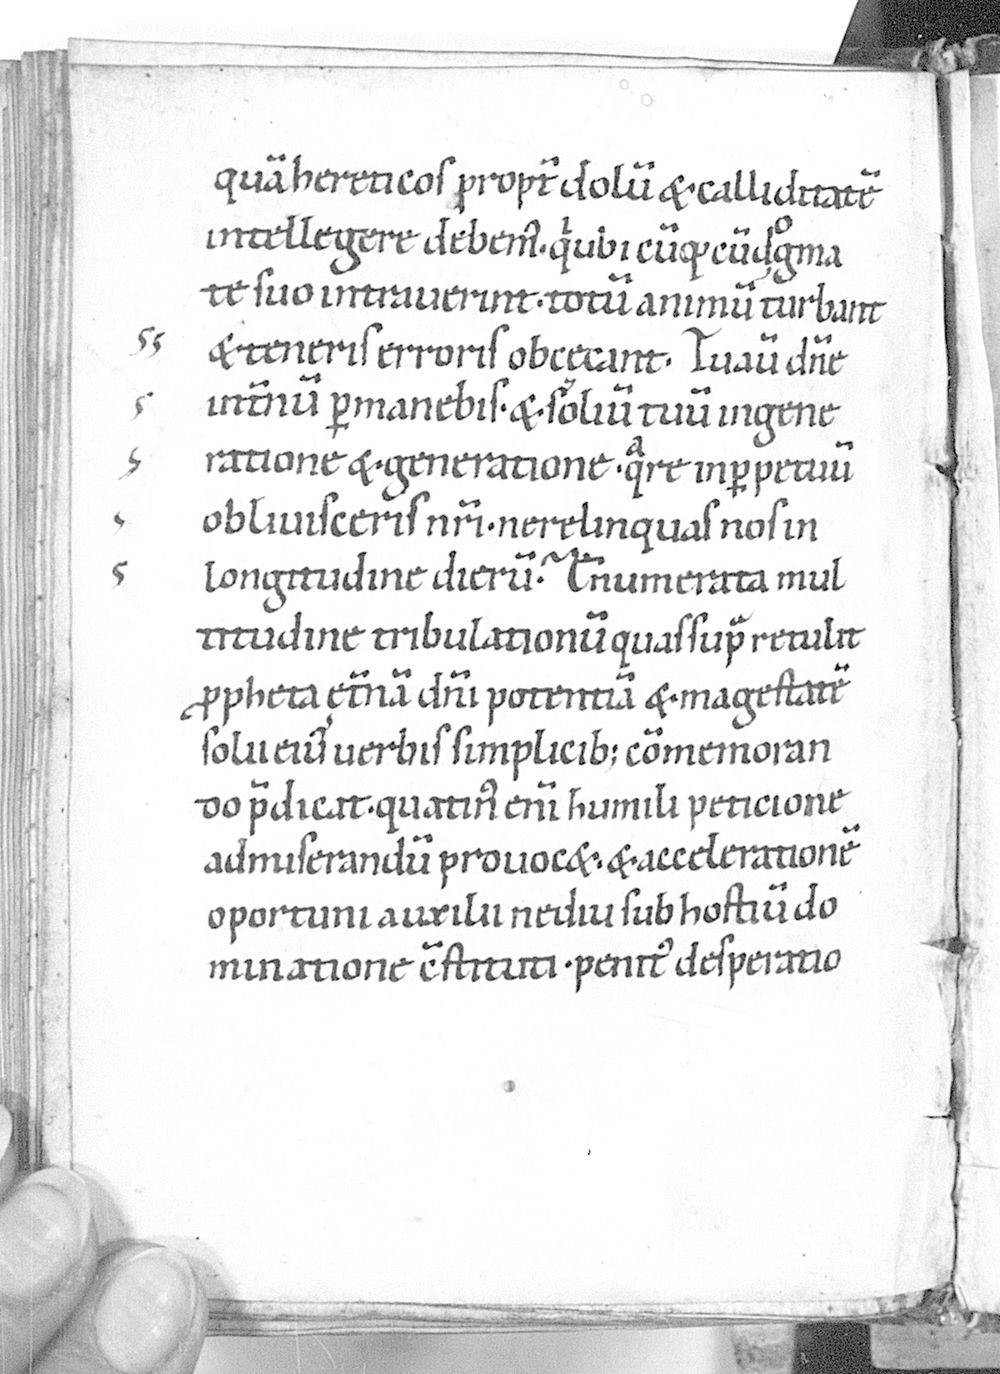 quā hereticos propt̄ dolū & calliditatē
intellegere debem᷒. q̍ ubicūq; cū dogma
te suo intrauerint. totū animū turbant
& teneris erroris obcęcant. Tu aū dn̄e
int̄nū ꝑmanebis. & soliū tuū in gene
ratione & generatione. qͣre in ꝑpetuū
obliuisceris nr̄i. ne relinquas nos in
longitudine dierū. Enumerata mul
titudine tribulationū quas sup̄ retulit
ꝓpheta ęt̄nā dn̄i potentiā & magestatē
solii eiꝰ uerbis simplicib; cōmemoran
do p̄dicat. quatinꝰ enī humili peticione
ad miserandū prouoc&. & acceleratione̅
oportuni auxilii ne diu sub hostiū do
minatione c̄stituti. penitꝰ desperatio